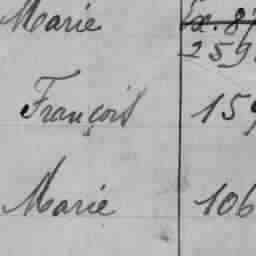 Marie
259
François 159
Marie 106